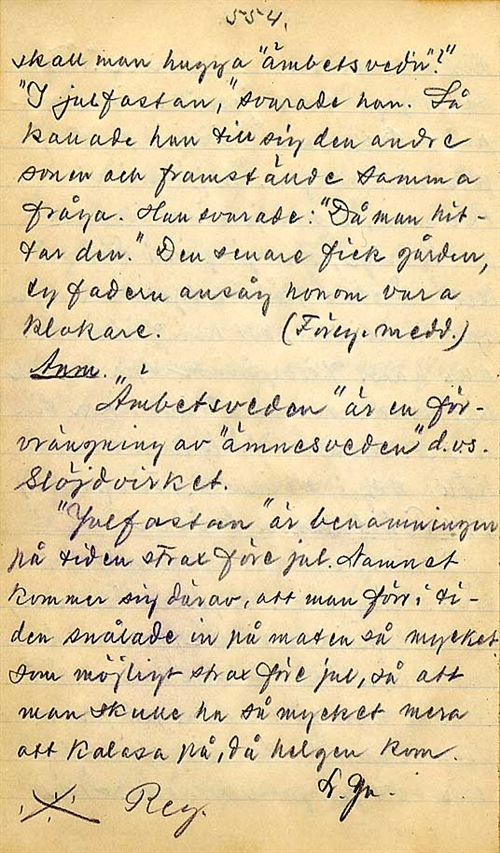 554.
skall man hugga "ämbetsved'n"?"
"I julfastan," svarade han. Så
kallade han till sig den andre
sonen och framstände samma
fråga. Han svarade: "Då man hit-
tar den." Den senare fick gården,
ty fadern ansåg honom vara
klokare. (Föreg. medd.)
Anm.
"Ämbetsveden" är en för-
vrängning av "ämnesveden" d.vs.
Slöjdvirket.
"Julfastan" är benämningen
på tiden strax före jul. Namnet
kommer sig därav, att man förr i ti-
den snålade in på maten så mycket
som möjligt strax före jul, så att
man skulle ha så mycket mera
att kalasa på, då helgen kom.
S. Gn.
Reg.